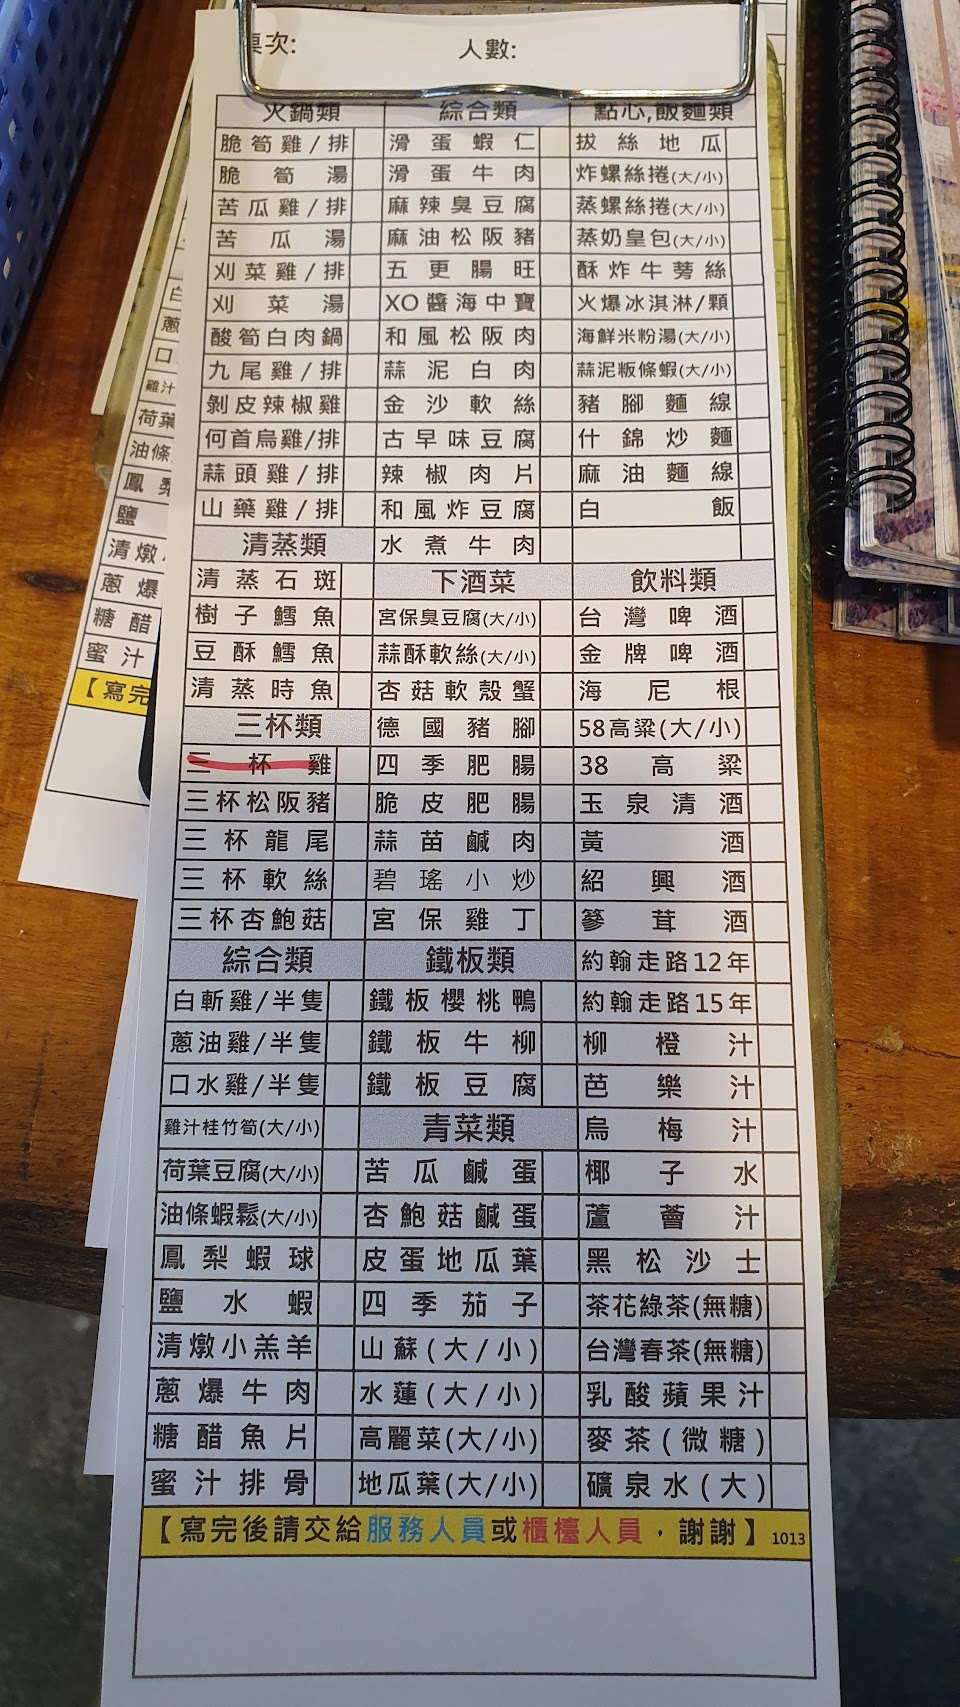 桌次:
人數:
火鍋類
脆筍雞/排
脆筍湯
苦瓜雞/排
苦瓜湯
刈菜雞/排
刈菜湯
酸筍白肉鍋
九尾雞/排
剝皮辣椒雞
何首烏雞/排
蒜頭雞/排
山藥雞/排
清蒸類
清蒸石斑
樹子鱈魚
豆酥鱈魚
清蒸時魚
三杯類
三杯雞
三杯松阪豬
三杯龍尾
三杯軟絲
三杯杏鮑菇
綜合類
白斬雞/半隻
蔥油雞/半隻
口水雞/半隻
雞汁桂竹筍(大/小)
荷葉豆腐(大/小)
油條蝦鬆(大/小)
鳳梨蝦球
鹽水蝦
清燉小羔羊
蔥爆牛肉
糖醋魚片
蜜汁排骨
綜合類
滑蛋蝦仁
滑蛋牛肉
麻辣臭豆腐
麻油松阪豬
五更腸旺
XO醬海中寶
和風松阪肉
蒜泥白肉
金沙軟絲
古早味豆腐
辣椒肉片
和風炸豆腐
水煮牛肉
下酒菜
宮保臭豆腐(大/小)
蒜酥軟絲(大/小)
杏菇軟殼蟹
德國豬腳
四季肥腸
脆皮肥腸
蒜苗鹹肉
碧瑤小炒
宮保雞丁
鐵板類
鐵板櫻桃鴨
鐵板牛柳
鐵板豆腐
青菜類
苦瓜鹹蛋
杏鮑菇鹹蛋
皮蛋地瓜葉
四季茄子
山蘇(大/小)
水蓮(大/小)
高麗菜(大/小)
地瓜葉(大/小)
點心,飯麵類
拔絲地瓜
炸螺絲捲(大/小)
蒸螺絲捲(大/小)
蒸奶皇包(大/小)
酥炸牛蒡絲
火爆冰淇淋/顆
海鮮米粉湯(大/小)
蒜泥粄條蝦(大/小)
豬腳麵線
什錦炒麵
麻油麵線
白飯
飲料類
台灣啤酒
金牌啤酒
海尼根
58高粱(大/小)
38高粱
玉泉清酒
黃酒
紹興酒
蔘茸酒
約翰走路12年
約翰走路15年
柳橙汁
芭樂汁
烏梅汁
椰子水
蘆薈汁
黑松沙士
茶花綠茶(無糖)
台灣春茶(無糖)
乳酸蘋果汁
麥茶(微糖)
礦泉水(大)
【寫完後請交給服務人員或櫃檯人員，謝謝】1013